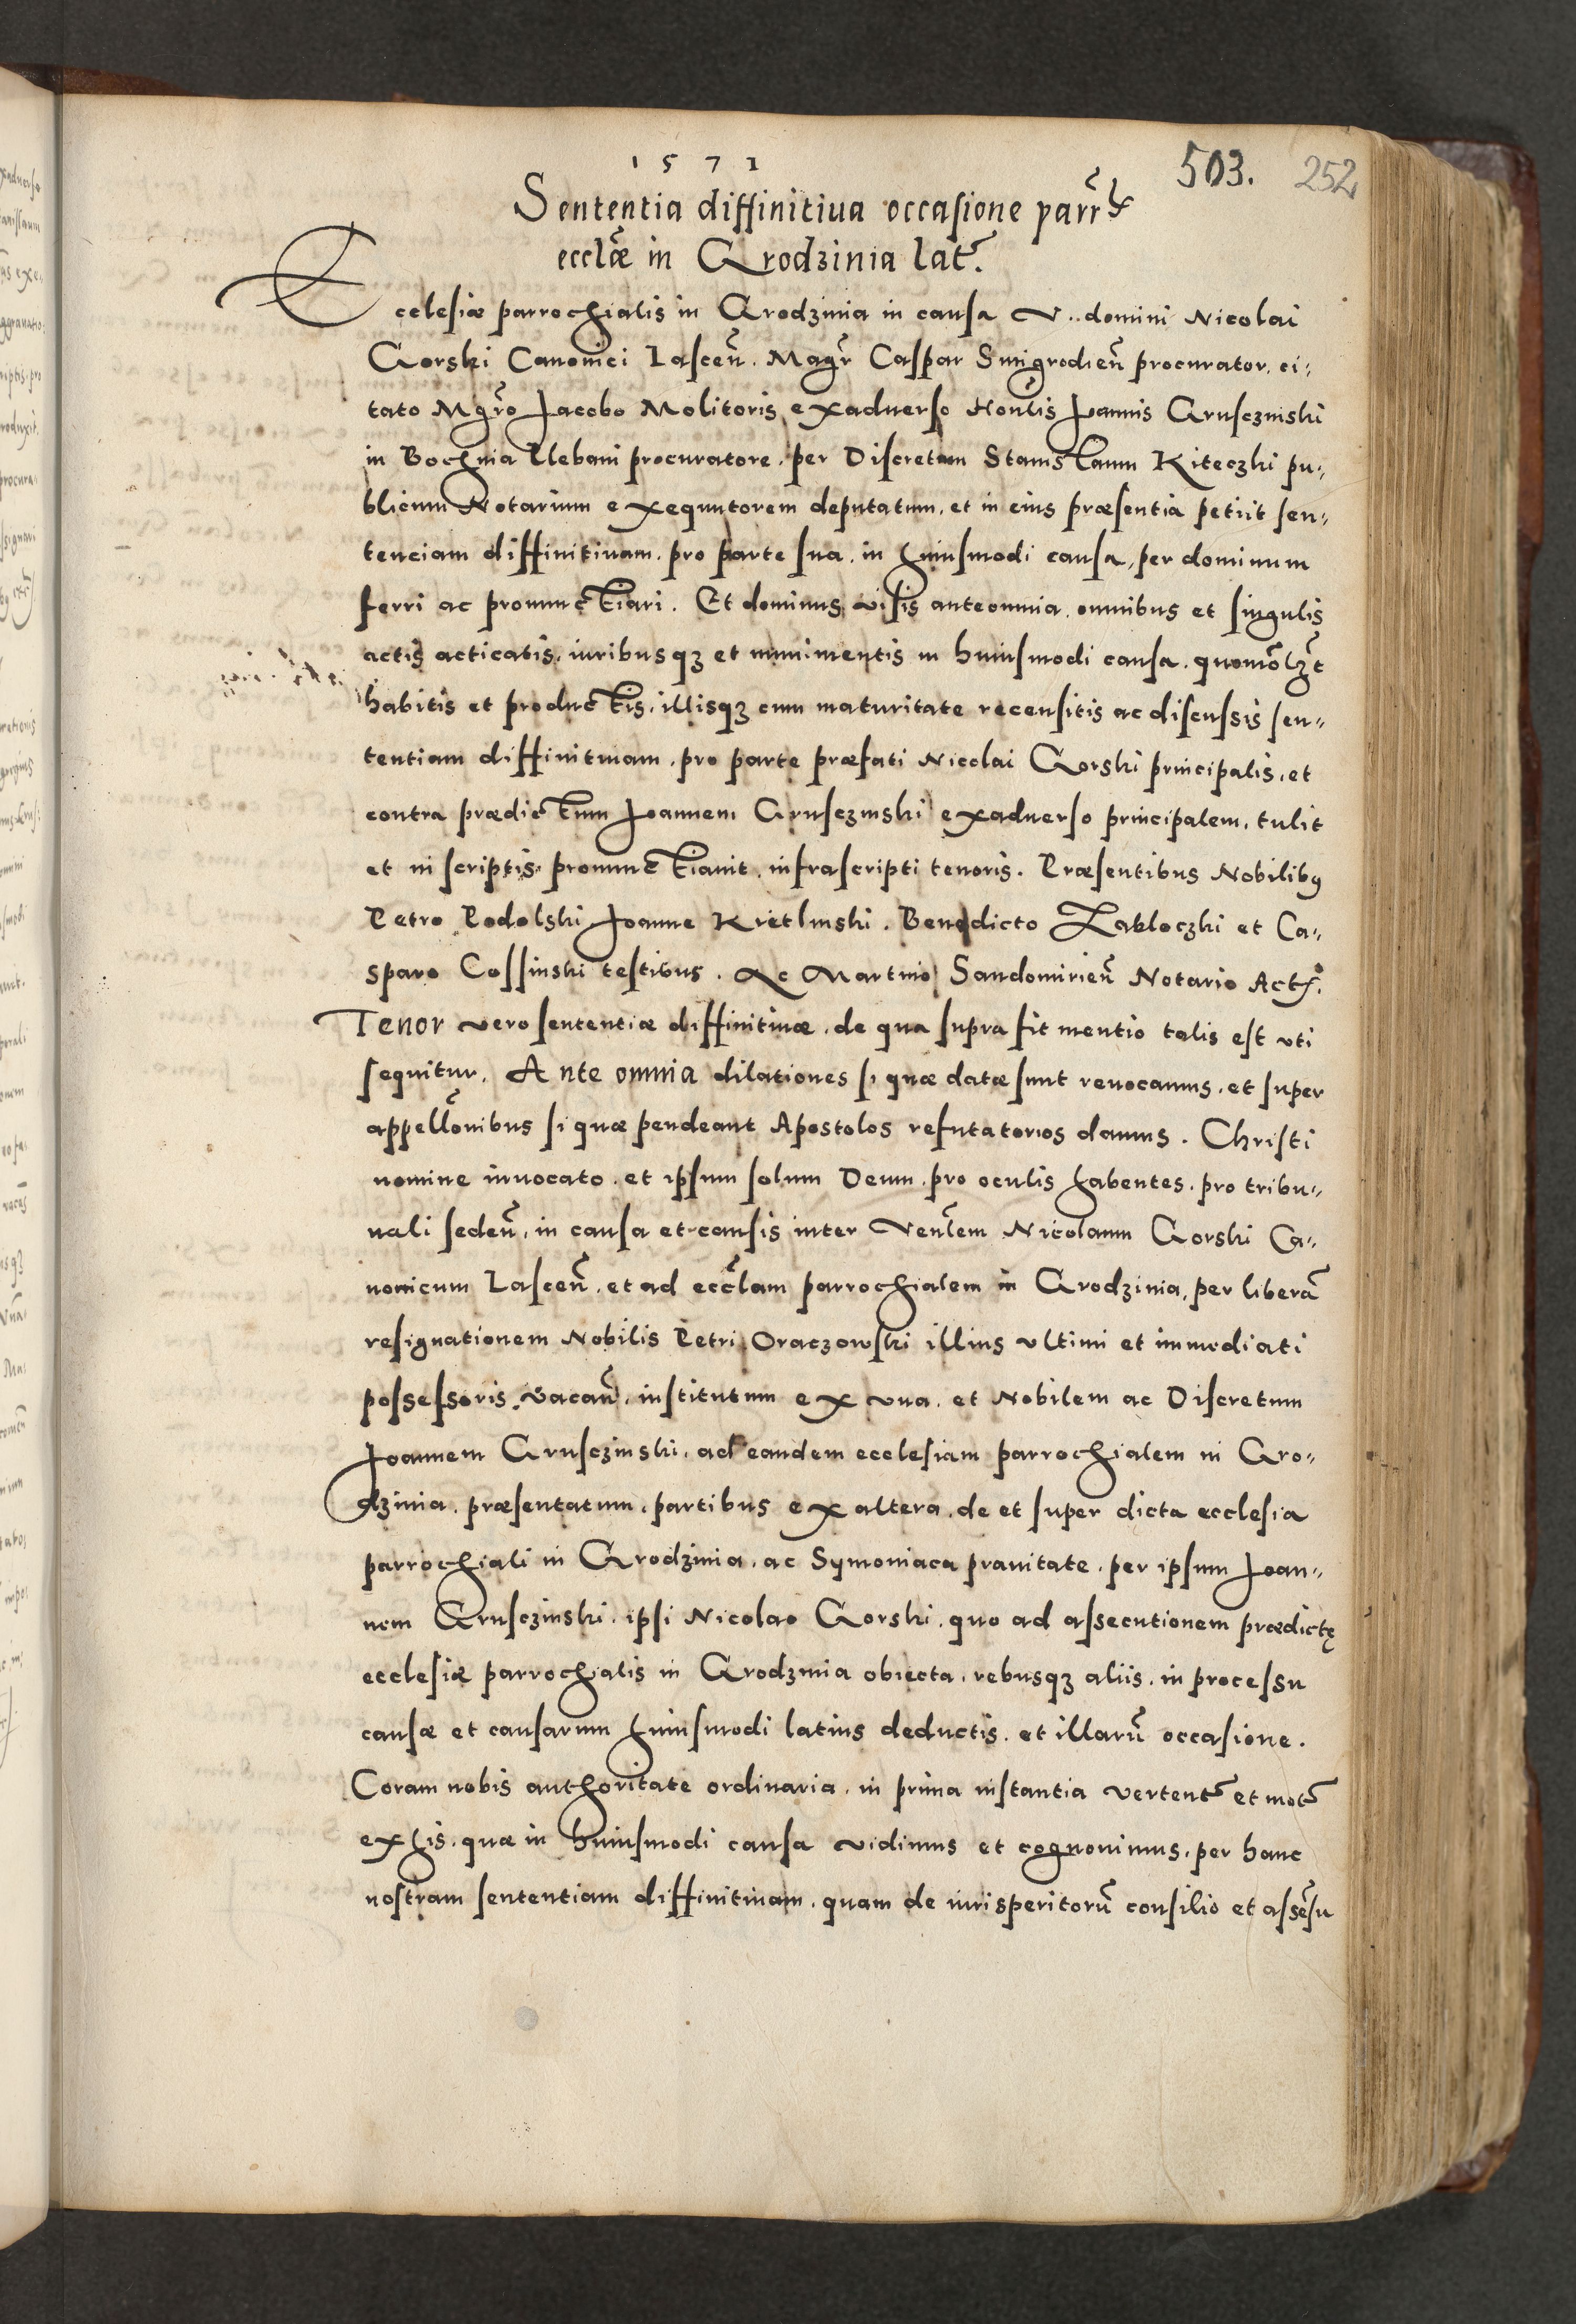 1571
503. 252
Sententia diffinitiua occasione parrlis
eccl̃æ in Grodzinia lat̃.
Ecclesiæ parrochialis in Grodzinia in causa V. domini Nicolai
Gorski Canonici Lasceñ. Magr̃ Caspar Smigrodieñ procurator, ci-
tato Mgr̃o Jacobo Molitoris exaduerso Hon̄lis Joannis Grusczinski
in Bochnia Plebani procuratore, per Discretum Stanislaum Kiteczki pu-
blicum Notarium exequutorem deputatum, et in eius præsentia petiit sen-
tenciam diffinitiuam, pro parte sua, in huiusmodi causa, per dominum
ferri ac pronunctiari. Et dominus visis anteomnia, omnibus et singulis
actis acticatis, iuribusqʒ et munimentis in huiusmodi causa, quomõlʒt
habitis et productis, illisqʒ cum maturitate recensitis ac discussis sen-
tentiam diffinitiuam, pro parte præfati Nicolai Gorski principalis, et
contra prædictum Joannem Grusczinski exaduerso principalem, tulit
et in scriptis pronunctiauit, infrascripti tenoris. Præsentibus Nobilibꝰ
Petro Podolski Joanne Kretlinski. Benedicto Zabloczki et Ca-
sparo Cossinski testibus. Ac Martino Sandomirieñ Notario Act.
Tenor vero sententiæ diffinitiuæ, de qua supra fit mentio talis est vti
sequitur. Ante omnia dilationes si quæ datæ sunt reuocamus, et super
appellõnibus si quæ pendeant Apostolos refutatorios damus. Christi
nomine inuocato, et ipsum solum Deum, pro oculis habentes, pro tribu-
nali sedeñ, in causa et causis inter Ven̄lem Nicolaum Gorski Ca-
nonicum Lasceñ, et ad ecc̃lam parrochialem in Grodzinia, per liberã
resignationem Nobilis Petri Oraczowski illius vltimi et immediati
possessoris vacañ, institutum ex vna, et Nobilem ac Discretum
Joannem Grusczinski, ad eandem ecclesiam parrochialem in Gro-
dzinia, præsentatum, partibus ex altera, de et super dicta ecclesia
parrochiali in Grodzinia, ac Symoniaca prauitate, per ipsum Joan-
nem Grusczinski, ipsi Nicolao Gorski, quo ad assecutionem prædictę
ecclesiæ parrochialis in Grodzinia obiecta, rebusqʒ aliis, in processu
causæ et causarum huiusmodi latius deductis, et illarũ occasione.
Coram nobis authoritate ordinaria, in prima instantia vertent̃ et mot̃
ex his, quæ in huiusmodi causa vidimus et cognouimus, per hanc
nostram sententiam diffinitiuam, quam de iurisperitorũ consilio et assẽsu